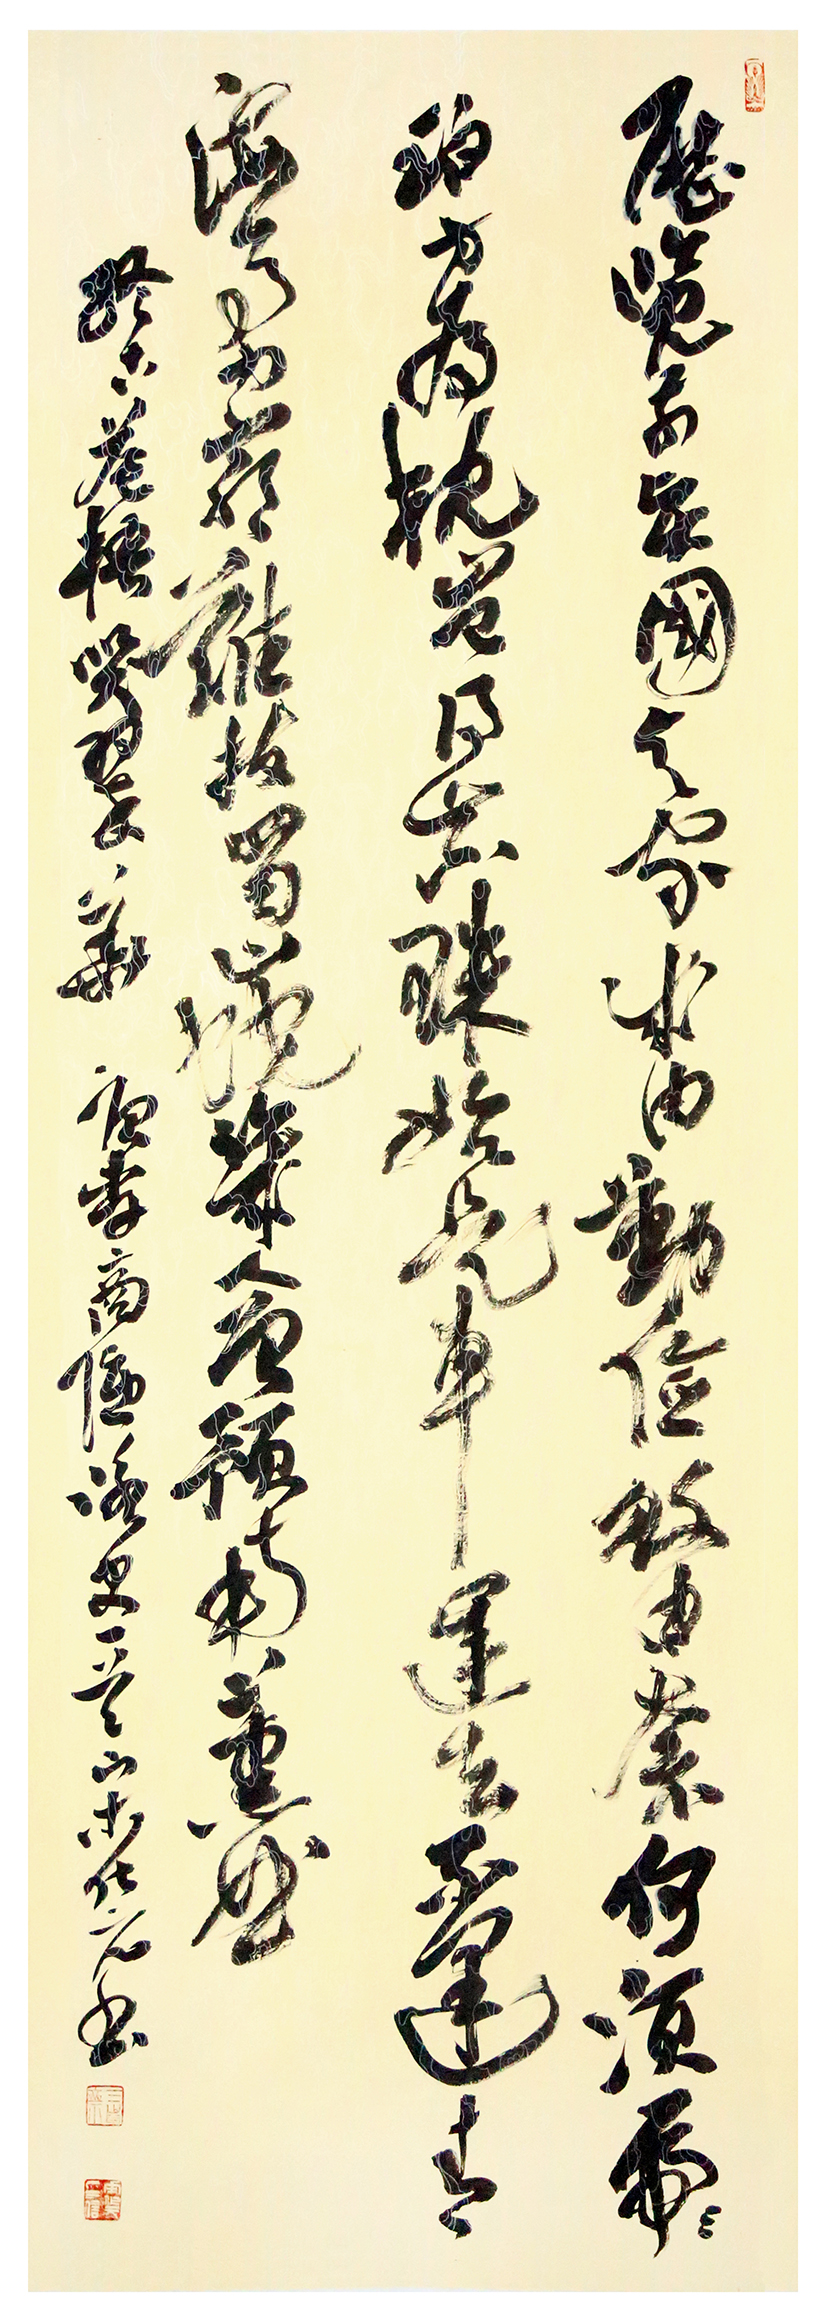 歷覽前賢國与家成由勤儉敗由奢何須琥
珀方為枕豈得真珠始是車運去不逢青
海馬力窮難拔蜀山蛇幾人曾預南薰曲
終古蒼梧哭翠華 唐李商隱詠史一首 書